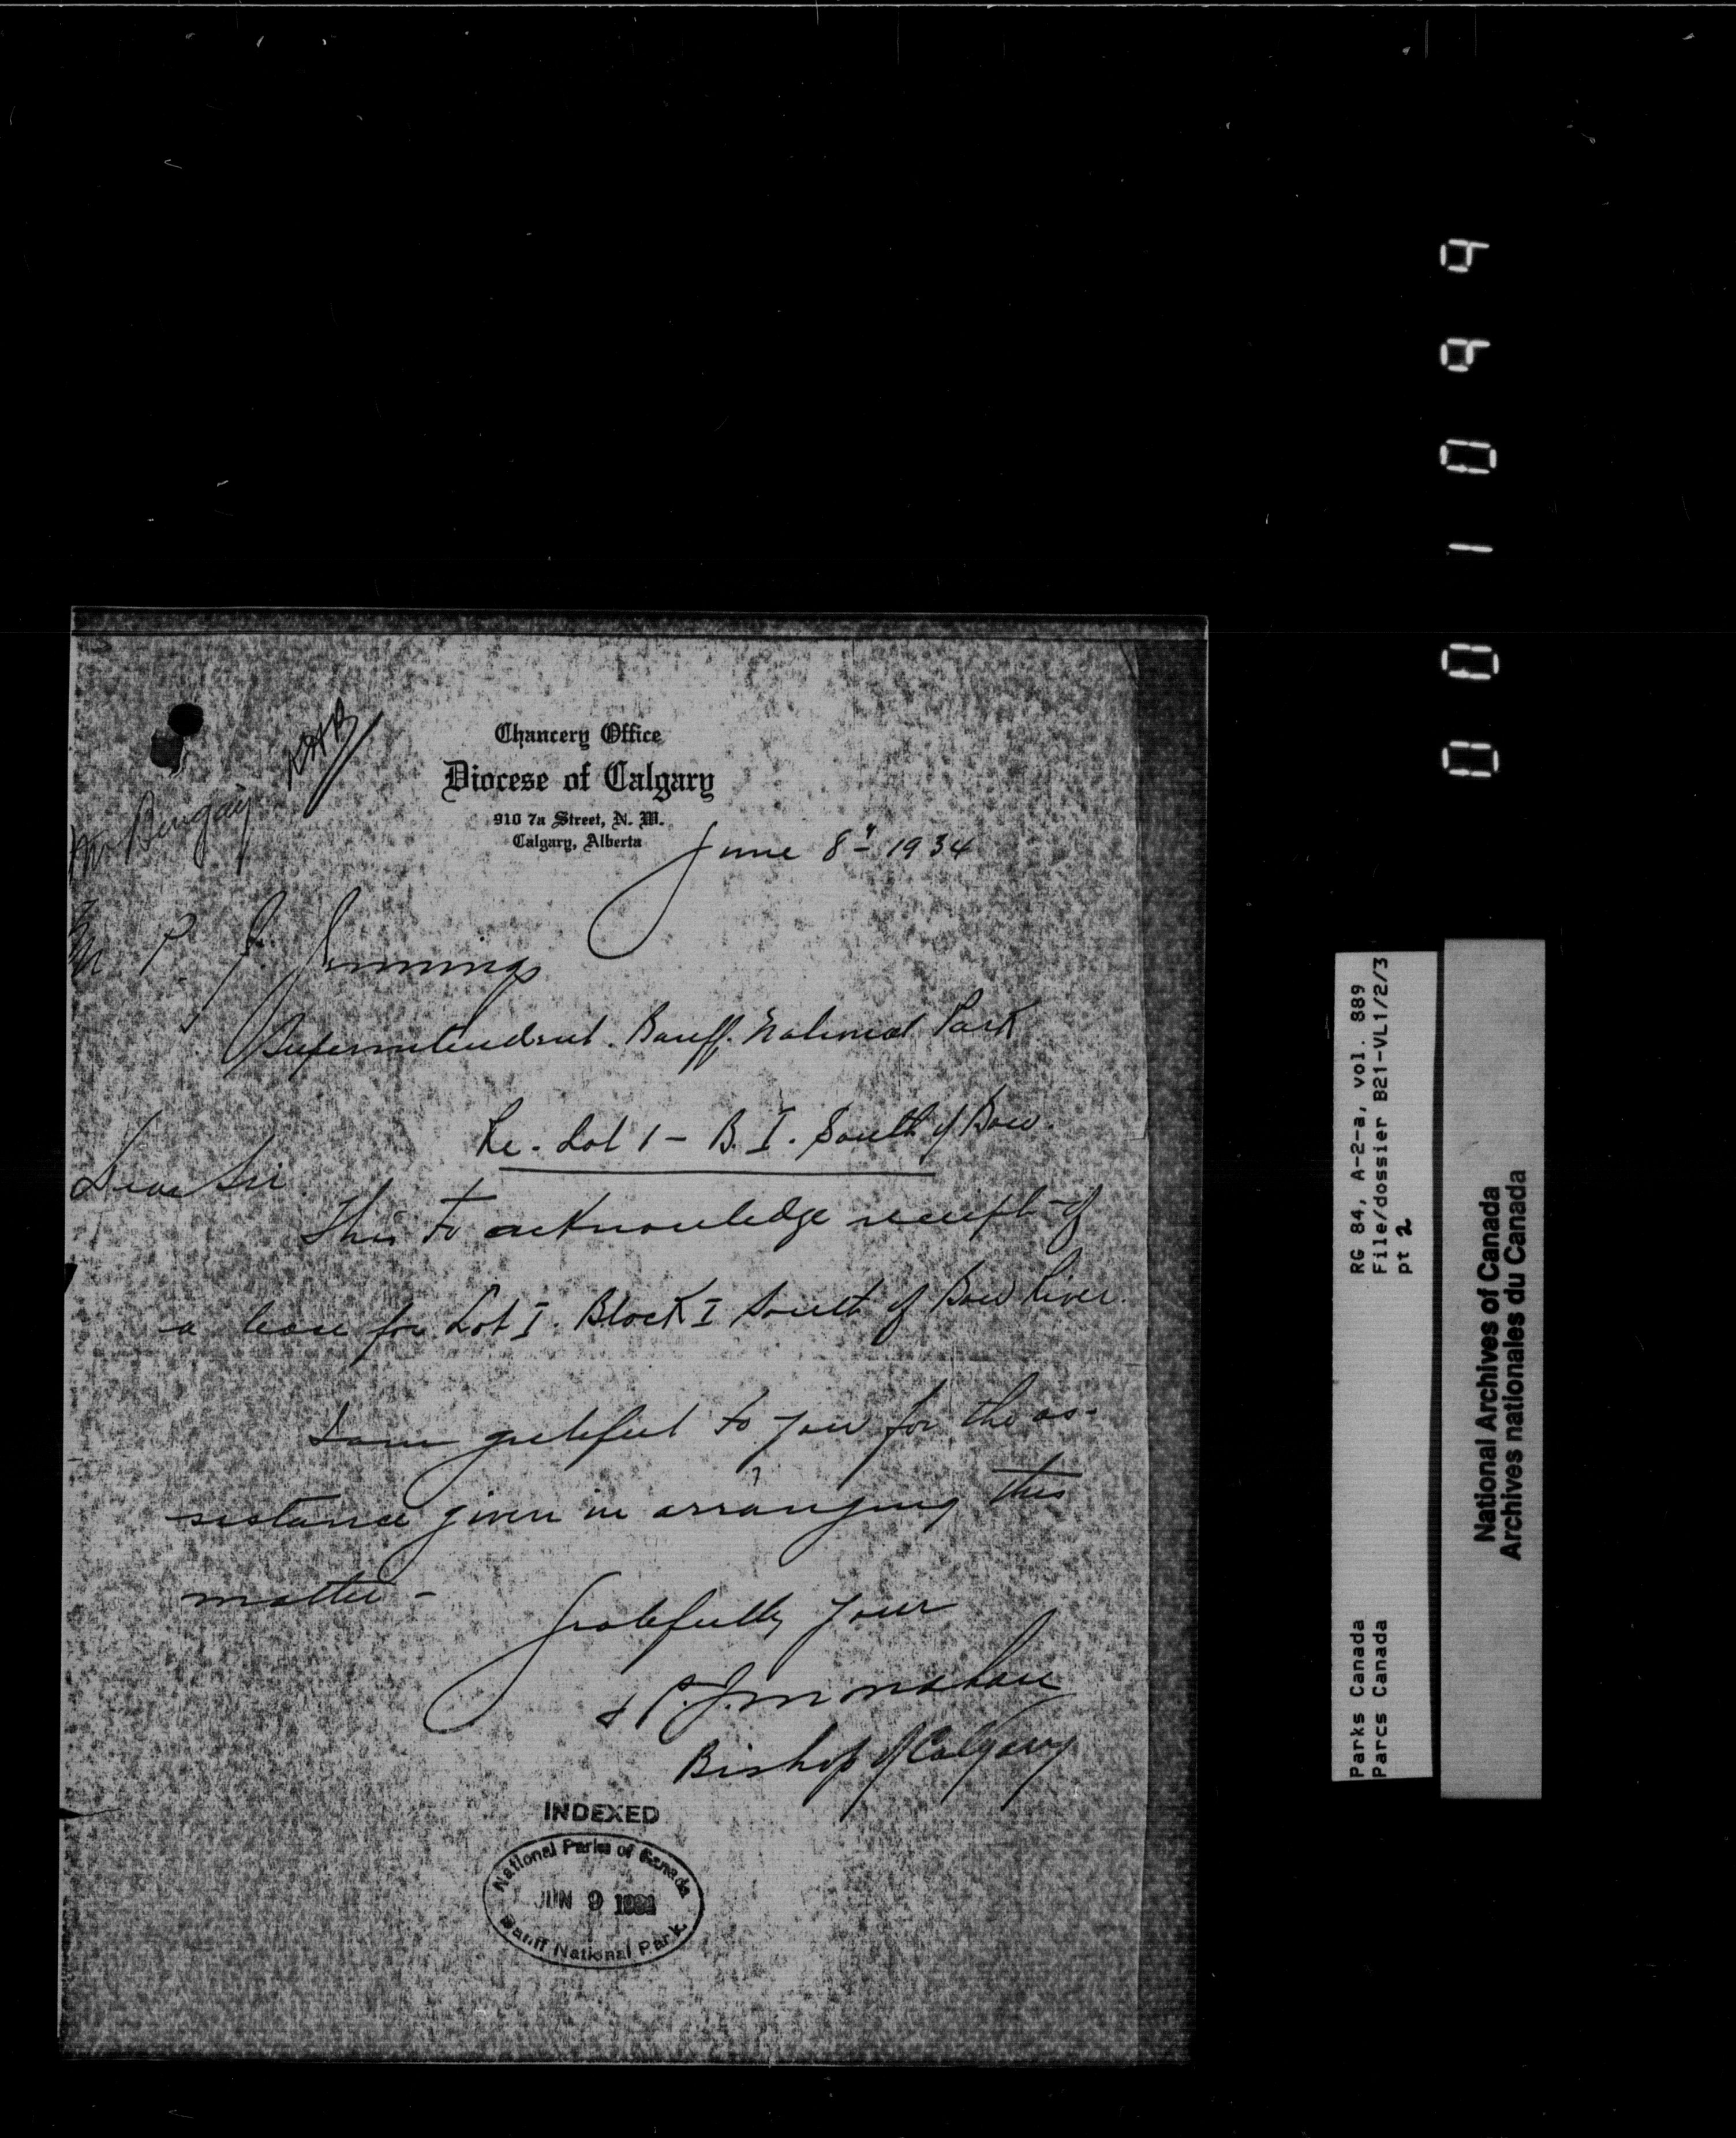 Chancery Office
Diocese of Calgary
910 7a Street, N. W.
Calgary, Alberta
June 8th 1934
Mr P. J. Jennings
Superintendent. Banff. National Park
Re. Lot 1 - B. I. South of Bow.
Dear Sir
This to acknowledge receipt of
a lease for Lot I. Block I South of Bow River.
I am grateful to you for the as-
sistance given in arranging this
matter -
Gratefully your
+ P. J. Monahan
Bishop of Calgary
INDEXED
National Parks of Canada
JUN 9 1934
Banff National Park
001099
RG 84, A-2-a, vol. 889
File/dossier B21-VL1/2/3
pt 2
Parks Canada
Parcs Canada
National Archives of Canada
Archives nationales du Canada